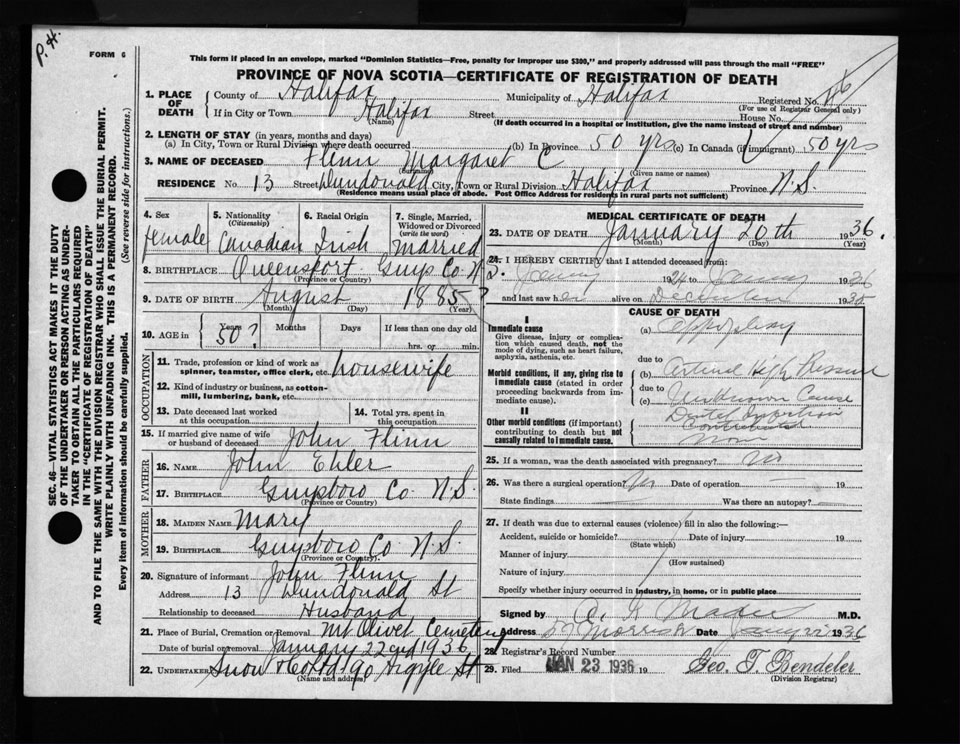 P. H.
FORM 6
This form if placed in an envelope, marked "Dominion Statistics—Free, penalty for improper use $300," and properly addressed will pass through the mail "FREE"
PROVINCE OF NOVA SCOTIA—CERTIFICATE OF REGISTRATION OF DEATH
SEC. 46—VITAL STATISTICS ACT MAKES IT THE DUTY
OF THE UNDERTAKER OR PERSON ACTING AS UNDER-
TAKER TO OBTAIN ALL THE PARTICULARS REQUIRED
IN THE "CERTIFICATE OF REGISTRATION OF DEATH"
AND TO FILE THE SAME WITH THE DIVISION REGISTRAR WHO SHALL ISSUE THE BURIAL PERMIT.
WRITE PLAINLY WITH UNFADING INK. THIS IS A PERMANENT RECORD.
Every item of information should be carefully supplied. (See reverse side for instructions.)
1. PLACE OF DEATH
County of Halifax Municipality of Halifax Registered No.
(For use of Registrar General only)
If in City or Town Halifax Street House No.
(Name) (If death occurred in a hospital or institution, give the name instead of street and number)
2. LENGTH OF STAY (in years, months and days)
(a) In City, Town or Rural Division where death occurred (b) In Province 50 yrs (c) In Canada (if immigrant) 50 yrs
3. NAME OF DECEASED Flinn Margaret C
(Surname) (Given name or names)
RESIDENCE No. 13 Street Dundonald City, Town or Rural Division Halifax Province N.S
(Residence means usual place of abode. Post Office Address for residents in rural parts not sufficient)
4. Sex female
5. Nationality (Citizenship) Canadian
6. Racial Origin Irish
7. Single, Married, Widowed or Divorced (write the word) married
8. BIRTHPLACE Queensport Guys. Co N S.
(Province or Country)
9. DATE OF BIRTH August 1885 ?
(Month) (Day) (Year)
10. AGE in Years 50? Months Days If less than one day old
hrs. or min.
OCCUPATION
11. Trade, profession or kind of work as spinner, teamster, office clerk, etc. housewife
12. Kind of industry or business, as cotton-mill, lumbering, bank, etc.
13. Date deceased last worked at this occupation
14. Total yrs. spent in this occupation
15. If married give name of wife or husband of deceased John Flinn
FATHER
16. NAME John Ehler
17. BIRTHPLACE Guysboro Co N.S.
(Province or Country)
MOTHER
18. MAIDEN NAME Mary
19. BIRTHPLACE Guysboro Co N.S.
(Province or Country)
20. Signature of informant John Flinn
Address 13 Dundonald St
Relationship to deceased Husband
21. Place of Burial, Cremation or Removal Mt Olivet Cemetery
Date of burial or removal January 22nd 1936
22. UNDERTAKER Snow & Co Ltd 90 Argyle St
(Name and address)
MEDICAL CERTIFICATE OF DEATH
23. DATE OF DEATH January 20th 1936.
(Month) (Day) (Year)
24. I HEREBY CERTIFY that I attended deceased from:
1924 to 1936
and last saw her alive on December 1935
CAUSE OF DEATH
I
Immediate cause
Give disease, injury or complication which caused death, not the mode of dying, such as heart failure, asphyxia, asthenia, etc.
(a)
Morbid conditions, if any, giving rise to immediate cause (stated in order proceeding backwards from immediate cause).
due to
(b) High Pressure
due to
(c) Unknown Cause
II
Other morbid conditions (if important) contributing to death but not causally related to immediate cause.
25. If a woman, was the death associated with pregnancy? No
26. Was there a surgical operation? No Date of operation — 19
State findings Was there an autopsy? -
27. If death was due to external causes (violence) fill in also the following:—
Accident, suicide or homicide? Date of injury 19
(State which)
Manner of injury
(How sustained)
Nature of injury
Specify whether injury occurred in industry, in home, or in public place
Signed by M.D.
Address 57 Morris St Date 1936
28. Registrar's Record Number
29. Filed JAN 23 1936 19 Geo. T. Bendeler
(Division Registrar)